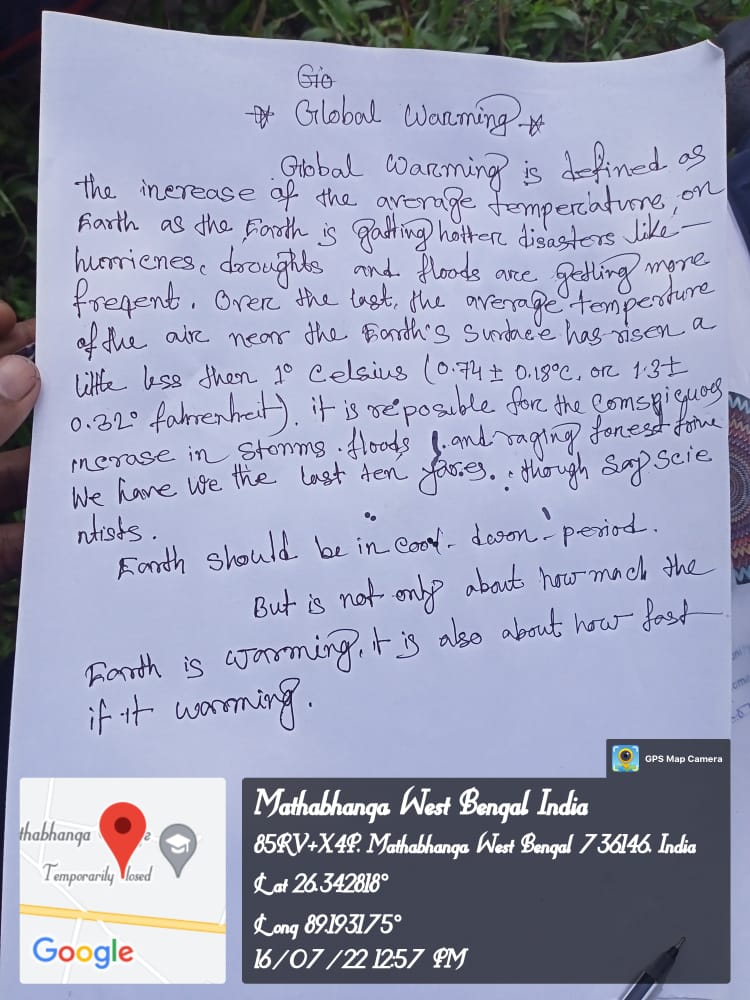 Gio
Global Warming
Global Warming is defined as
the increase of the average temperature, on
Earth as the Earth is gatting hotter disasters like-
hurrienes, droughts and floods are getling more
freqent. Over the last, the average temperture
of the air near the Earth's Surdace has risen a
little less then 1° Celsius (0.74 ± 0.18°C, or 1.3±
0.32° fahrenheit). it is reposible for the Comspiguous
incrase in stonms. floods, and raging forest
We have We the last ten . though Say Scie
ntists.
Earth should be in cool-down-period.
But is not only about how mach the
Earth is warming, it is also about how fast
if it warming.
GPS Map Camera
Mathabhanga West Bengal India
85RV+X4P. Mathabhanga West Bengal 736146. India
Lat 26.342818°
Long 89.193175°
16/07/22 12:57 PM
thabhanga
Temporarily losed
Google